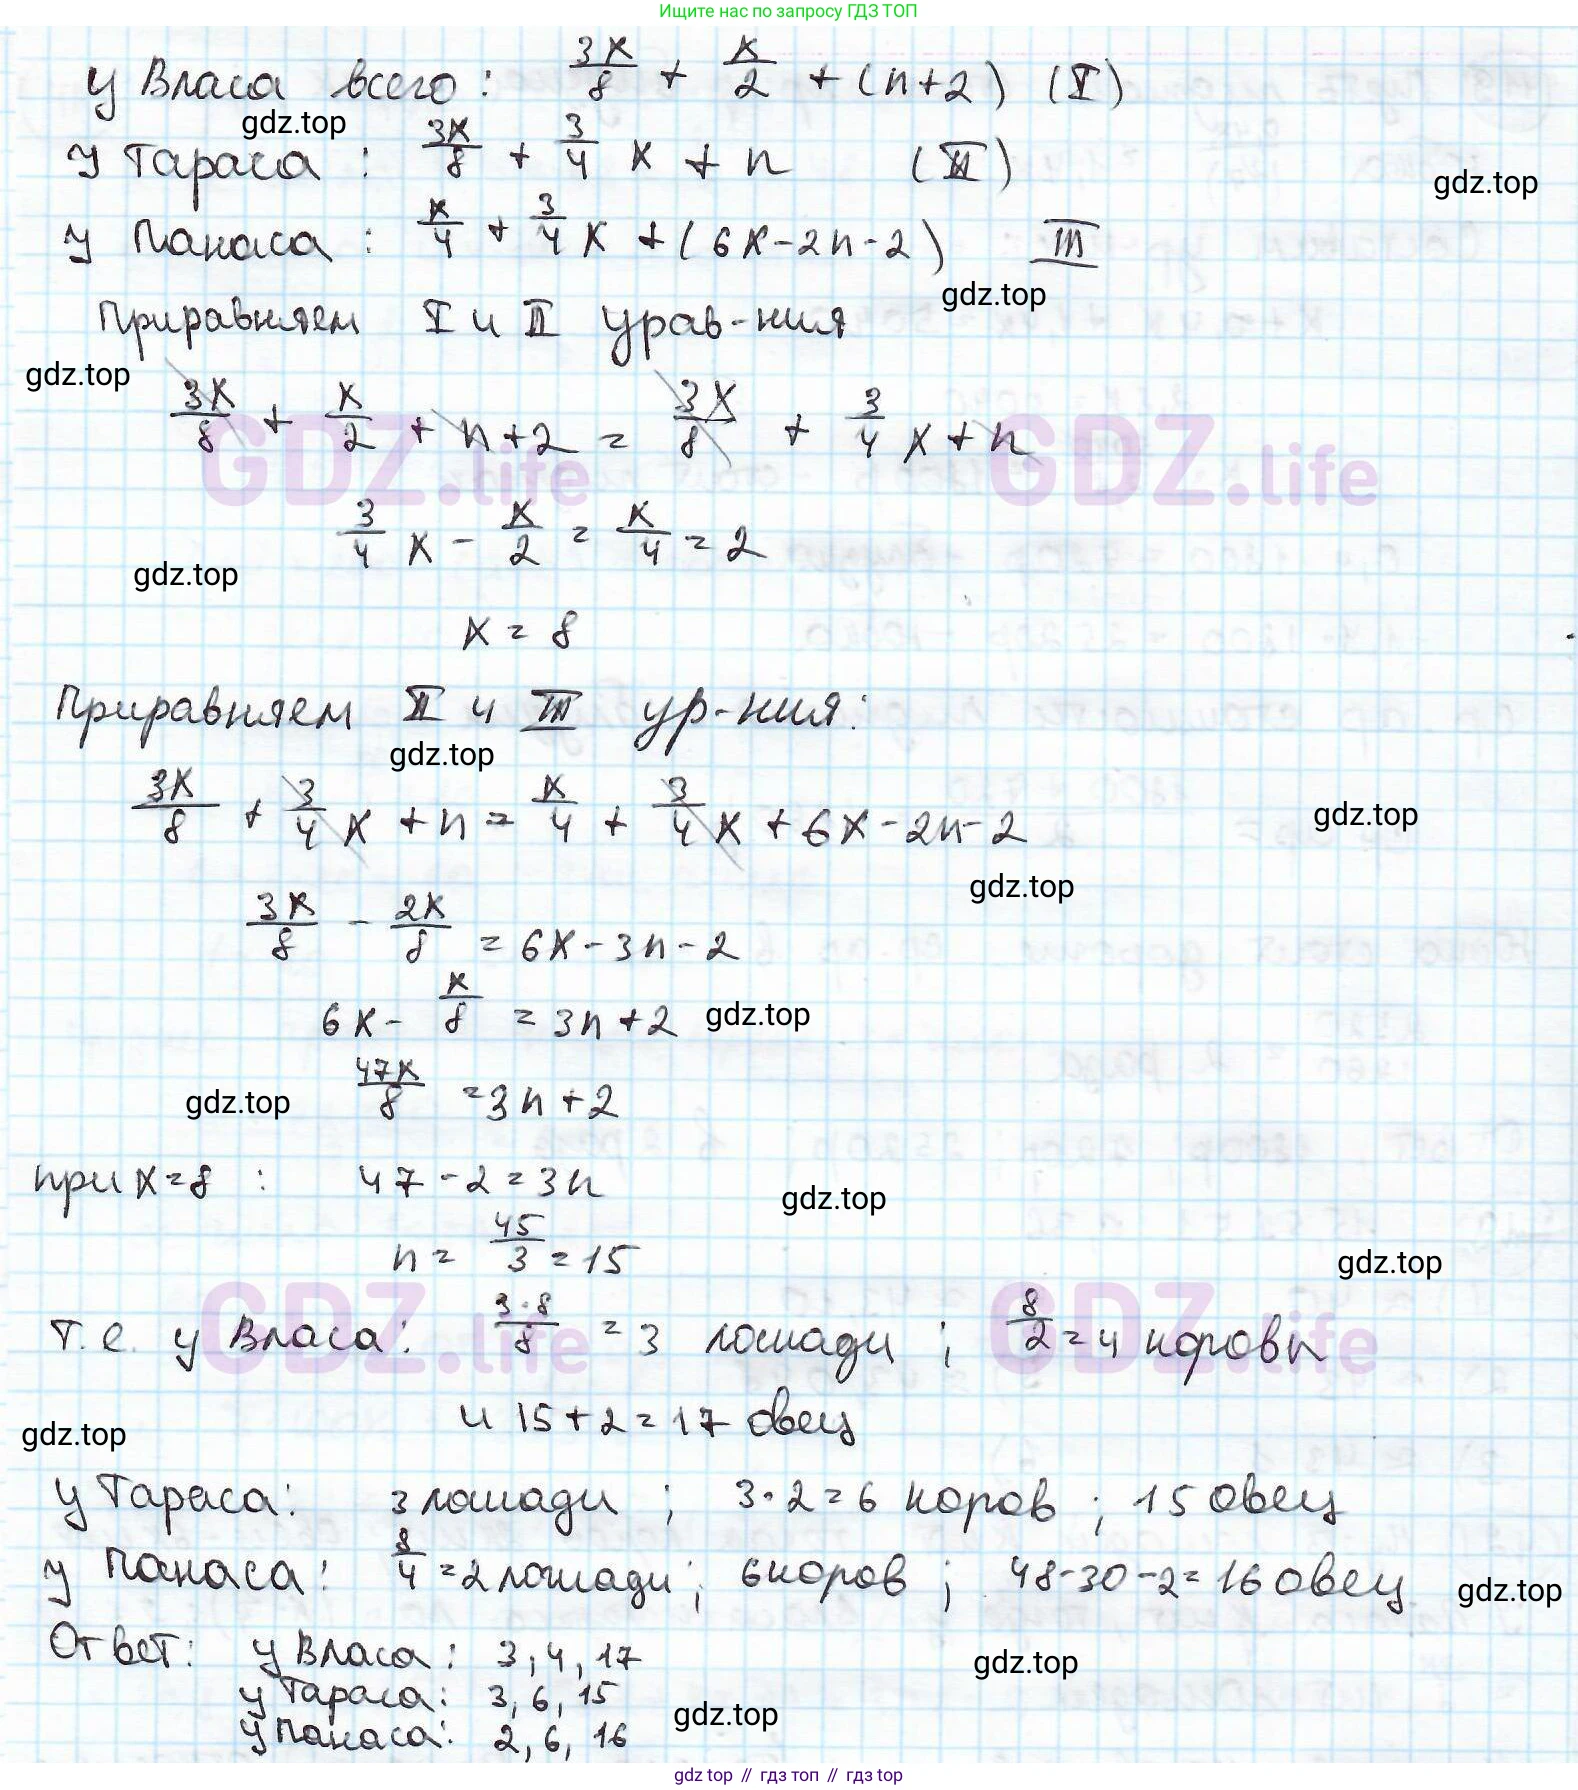 Ищите нас по запросу ГДЗ ТОП
у Власа всего: 3x/8 + x/2 + (n+2) (I)
gdz.top
у Тараса: 3x/8 + 3/4 x + n (II)
gdz.top
у Панаса: x/4 + 3/4 x + (6x-2n-2) III
gdz.top
Приравняем I и II урав-ния
gdz.top
3x/8 + x/2 + n+2 = 3x/8 + 3/4 x + n
GDZ.life GDZ.life
3/4 x - x/2 = x/4 = 2
gdz.top
x = 8
Приравняем II и III ур-ния:
gdz.top
3x/8 + 3/4 x + n = x/4 + 3/4 x + 6x - 2n - 2
gdz.top
gdz.top
3x/8 - 2x/8 = 6x - 3n - 2
6x - x/8 = 3n + 2
gdz.top
47x/8 = 3n + 2
gdz.top
при x=8 : 47 - 2 = 3n
gdz.top
n = 45/3 = 15
gdz.top
GDZ.life GDZ.life
т.е. у Власа: 3·8/8 = 3 лошади ; 8/2 = 4 коровы
и 15+2=17 овец
gdz.top
у Тараса: 3 лошади ; 3·2=6 коров ; 15 овец
у Панаса: 8/4 =2 лошади; 6 коров ; 48-30-2=16 овец
gdz.top
Ответ: у Власа: 3, 4, 17
gdz.top
у Тараса: 3, 6, 15
gdz.top
у Панаса: 2, 6, 16
gdz top // гдз топ // гдз top